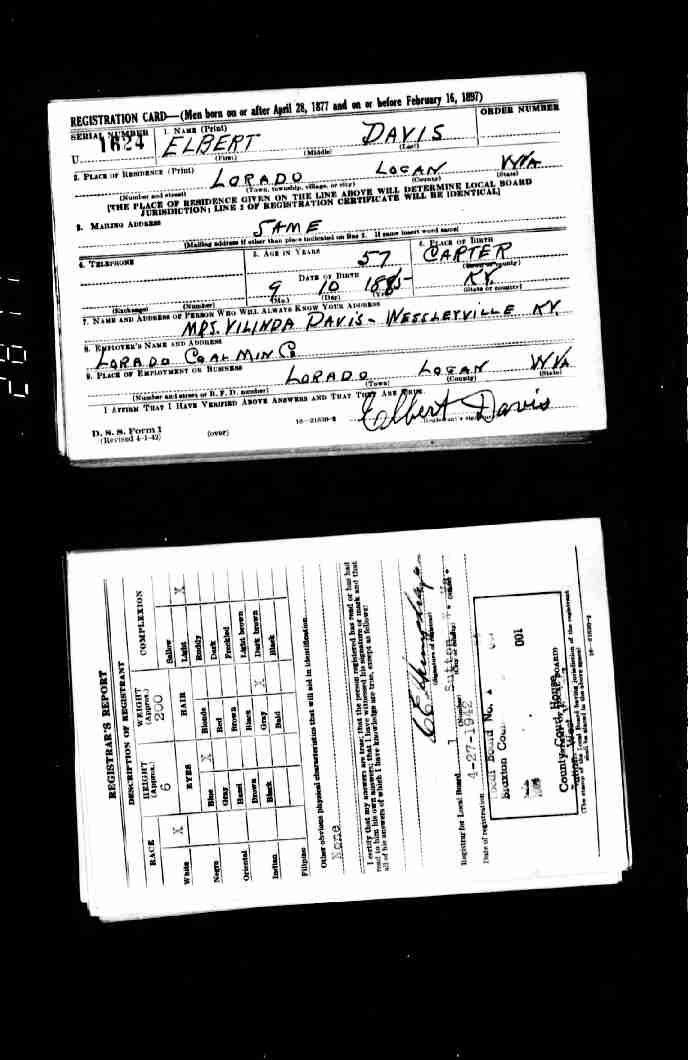 REGISTRATION CARD—(Men born on or after April 28, 1877 and on or before February 16, 1897)
SERIAL NUMBER 1. NAME (Print) ORDER NUMBER
1624 ELBERT DAVIS
U (First) (Middle) (Last)
2. PLACE OF RESIDENCE (Print)
LORADO LOGAN WVA
(Number and street) (Town, township, village, or city) (County) (State)
[THE PLACE OF RESIDENCE GIVEN ON THE LINE ABOVE WILL DETERMINE LOCAL BOARD
JURISDICTION; LINE 2 OF REGISTRATION CERTIFICATE WILL BE IDENTICAL]
3. MAILING ADDRESS
SAME
[Mailing address if other than place indicated on line 2. If same insert word same]
4. TELEPHONE 5. AGE IN YEARS 6. PLACE OF BIRTH
57 CARTER
DATE OF BIRTH (Town or county)
9 10 1885 KY.
(Exchange) (Number) (Mo.) (Day) (State or country)
7. NAME AND ADDRESS OF PERSON WHO WILL ALWAYS KNOW YOUR ADDRESS
MRS. VILINDA DAVIS - WESSLEYVILLE KY.
8. EMPLOYER'S NAME AND ADDRESS
LORADO COAL MIN Co
9. PLACE OF EMPLOYMENT OR BUSINESS
LORADO LOGAN WVA
(Number and street or R. F. D. number) (Town) (County) (State)
I AFFIRM THAT I HAVE VERIFIED ABOVE ANSWERS AND THAT THEY ARE TRUE.
D. S. S. Form 1 Elbert Davis
(Revised 4-1-42) (over) 16—21630-2 (Registrant's signature)
REGISTRAR'S REPORT
DESCRIPTION OF REGISTRANT
RACE HEIGHT (Approx.) WEIGHT (Approx.) COMPLEXION
6 200
EYES HAIR
White X Sallow
Light X
Negro Blue X Blonde Ruddy
Gray Red Dark
Oriental Hazel Brown Freckled
Brown Black Light brown
Indian Black Gray X Dark brown
Bald Black
Filipino
Other obvious physical characteristics that will aid in identification
None
I certify that my answers are true; that the person registered has read or has had
read to him his own answers; that I have witnessed his signature or mark and that
all of his answers of which I have knowledge are true, except as follows:
(Signature of registrar)
Registrar for Local Board 1 Sutton W Va.
(Number) (City or county) (State)
Date of registration 4-27-1942
Local Board No.
Braxton Coun
001
County Court House
(The stamp of the Local Board having jurisdiction of the registrant
shall be placed in the above space)
16—21630-2